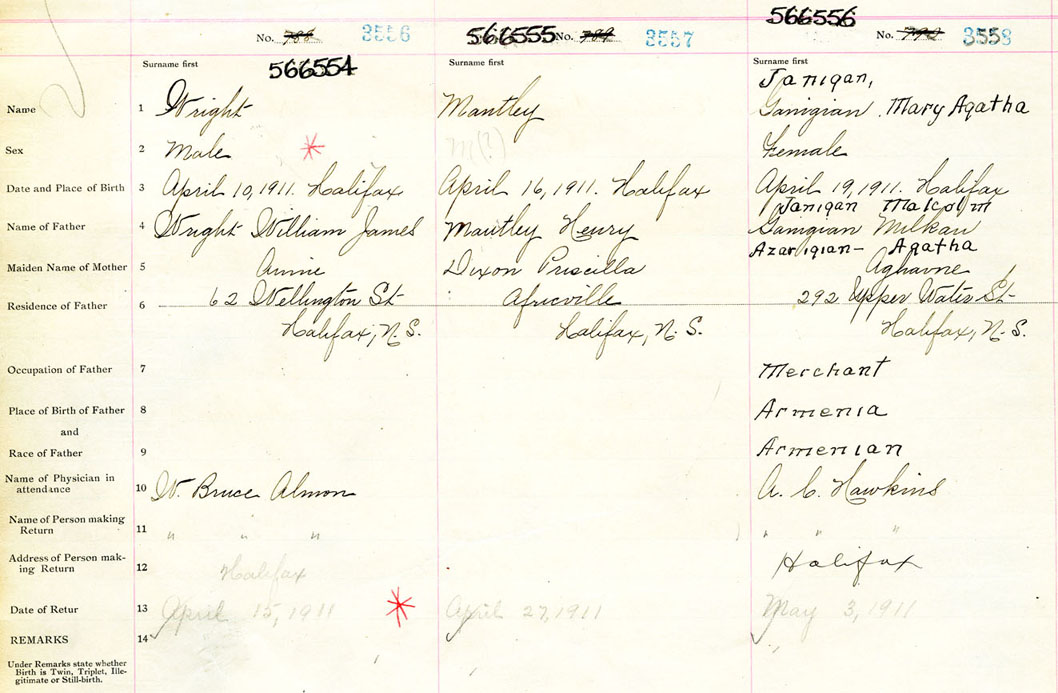 566556
No. 788 3556 566555 No. 789 3557 No. 790 3558
Surname first 566554 Surname first Surname first
Janigan,
Name 1 Wright Mantley Ganigian Mary Agatha
Sex 2 Male * M(?) Female
Date and Place of Birth 3 April 10, 1911. Halifax April 16, 1911. Halifax April 19, 1911. Halifax
Janigan Malcolm
Name of Father 4 Wright William James Mantley Henry Ganigian Milkau
Azarigian- Agatha
Maiden Name of Mother 5 Annie Dixon Priscilla Aghavne
Residence of Father 6 62 Wellington St- Africville 292 Upper Water St-
Halifax, N.S. Halifax, N.S. Halifax, N.S.
Occupation of Father 7 Merchant
Place of Birth of Father 8 Armenia
and
Race of Father 9 Armenian
Name of Physician in
attendance 10 W. Bruce Almon A. C. Hawkins
Name of Person making
Return 11 " " " " " "
Address of Person mak-
ing Return 12 Halifax Halifax
Date of Retur 13 April 15, 1911 * April 27, 1911 May 3, 1911
REMARKS 14
Under Remarks state whether
Birth is Twin, Triplet, Ille-
gitimate or Still-birth.